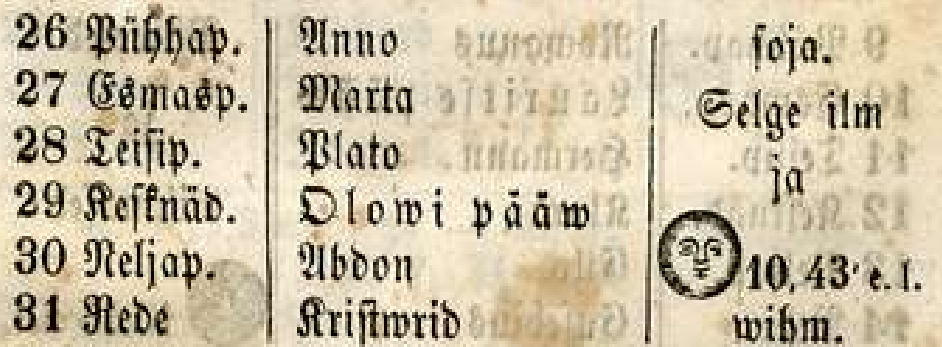 26 Pühhap. Anno soja.
27 Esmasp. Marta Selge ilm
28 Teisip. Plato ja
29 Kesknäd. Olowi pääw
30 Neljap. Abdon 10,43' e. l.
31 Rede Kristwrid wihm.